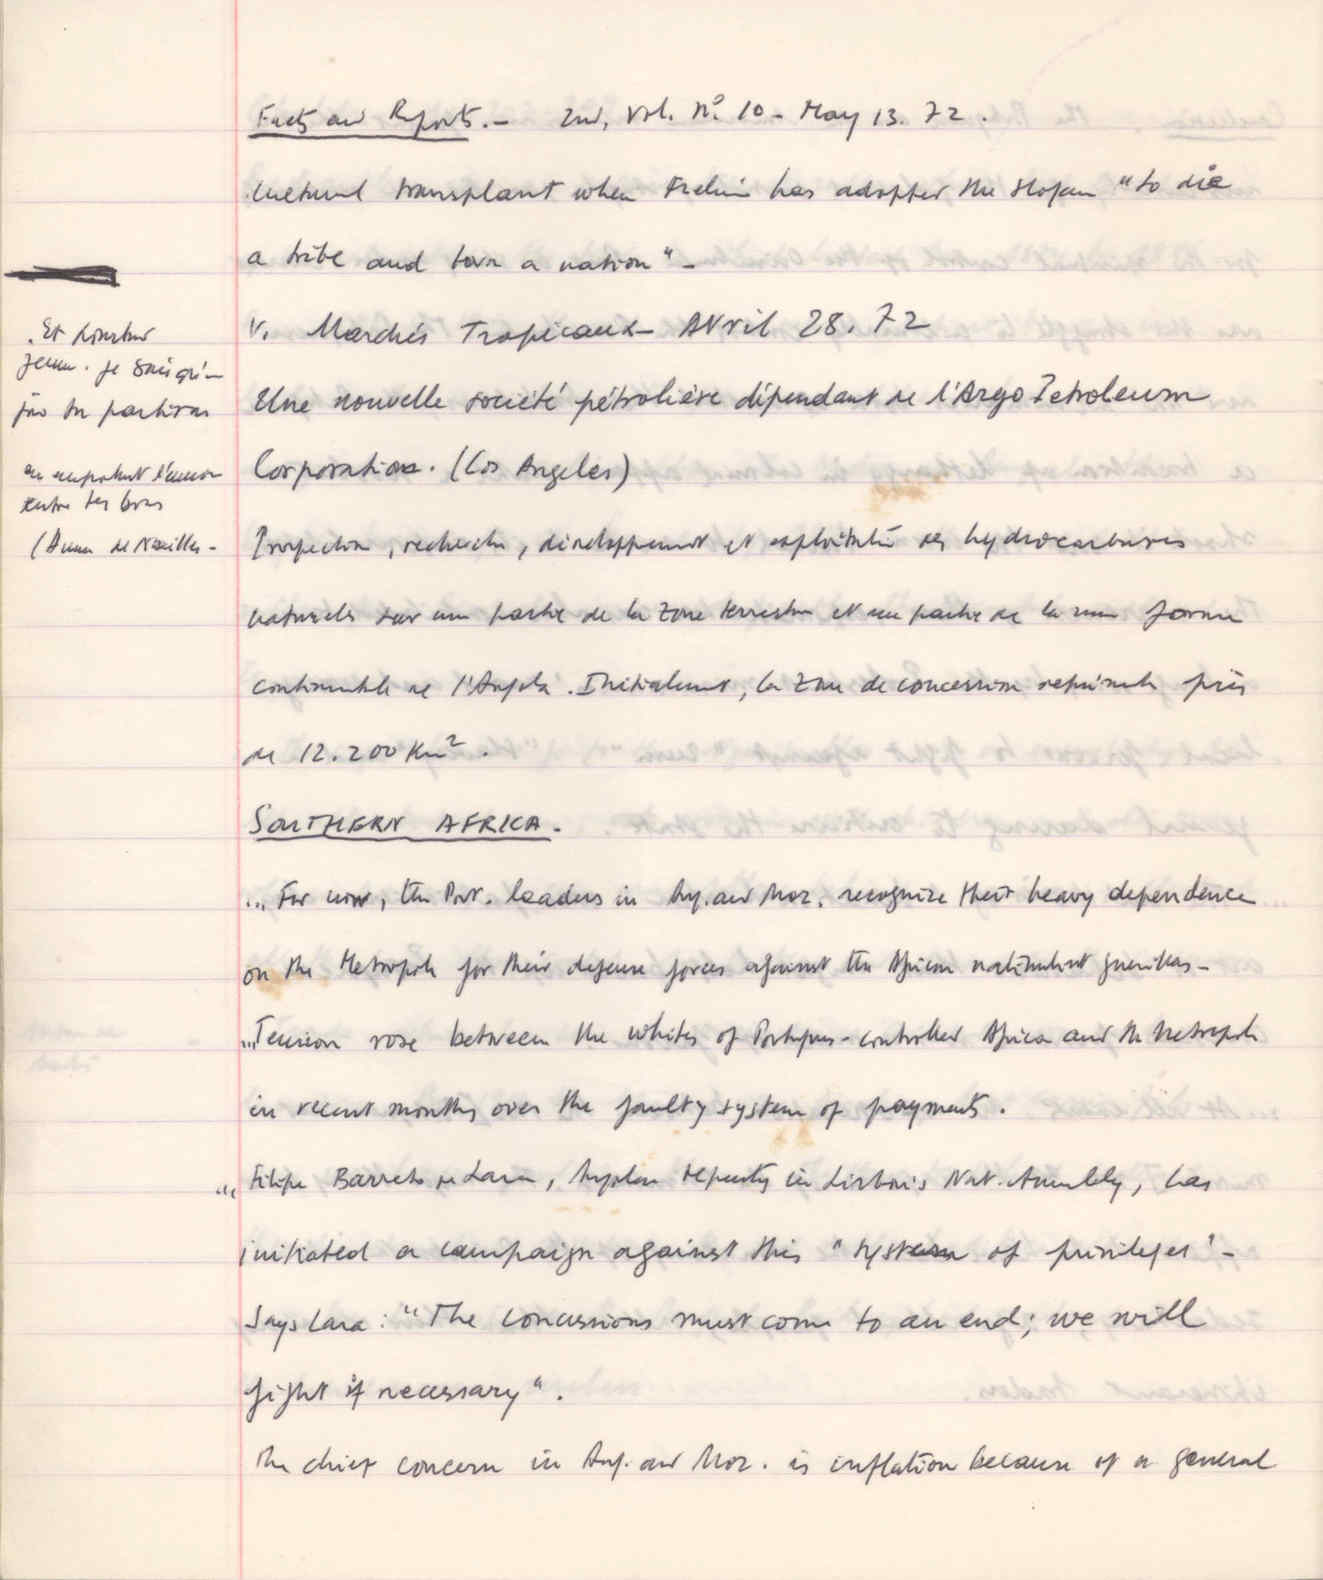 Facts and Reports. - 2nd, Vol. Nº 10 - May 13. 72.
Cultural transplant when Frelimo has adopted the slogan "to die
a tribe and born a nation" -
V. Marchés Tropicaux - Avril 28. 72
Une nouvelle société pétrolière dépendant de l'Argo Petroleum
Corporation. (Los Angeles)
Prospection, recherche, développement et exploitation des hydrocarbures
naturels sur une partie de la zone terrestre et une partie de la
continentale de l'Angola. Initialement, la zone de concession représente près
de 12.200 Km².
SOUTHERN AFRICA.
... For now, the Port. leaders in Ang. and Moz. recognize their heavy dependence
on the Metropole for their defense forces against the African nationalist guerillas -
... Tension rose between the whites of Portuguese-controlled Africa and the Metropole
in recent months over the faulty system of payments.
" Filipe Barreto de Lara, Angolan deputy in Lisbon's Nat. Assembly, has
initiated a campaign against this "system of privileges" -
Says Lara: "The concessions must come to an end; we will
fight if necessary".
The chief concern in Ang. and Moz. is inflation because of a general
. Et pourtant
Je sais qu'-
partiras
en emportant l'amour
entre tes bras
(Anna de Noailles -